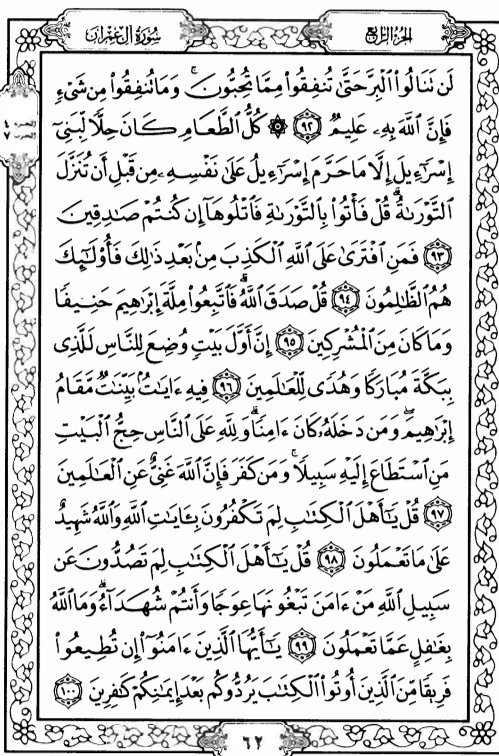 سُورَةُ آلِ عِمْرَان
الجُزْءُ الرَّابِعُ
لَن تَنَالُوا۟ ٱلْبِرَّ حَتَّىٰ تُنفِقُوا۟ مِمَّا تُحِبُّونَ ۚ وَمَا تُنفِقُوا۟ مِن شَىْءٍ
فَإِنَّ ٱللَّهَ بِهِۦ عَلِيمٌ ﴿٩٢﴾ ۞ كُلُّ ٱلطَّعَامِ كَانَ حِلًّا لِّبَنِىٓ
إِسْرَٰٓءِيلَ إِلَّا مَا حَرَّمَ إِسْرَٰٓءِيلُ عَلَىٰ نَفْسِهِۦ مِن قَبْلِ أَن تُنَزَّلَ
ٱلتَّوْرَىٰةُ ۗ قُلْ فَأْتُوا۟ بِٱلتَّوْرَىٰةِ فَٱتْلُوهَآ إِن كُنتُمْ صَـٰدِقِينَ
﴿٩٣﴾ فَمَنِ ٱفْتَرَىٰ عَلَى ٱللَّهِ ٱلْكَذِبَ مِنۢ بَعْدِ ذَٰلِكَ فَأُو۟لَـٰٓئِكَ
هُمُ ٱلظَّـٰلِمُونَ ﴿٩٤﴾ قُلْ صَدَقَ ٱللَّهُ ۗ فَٱتَّبِعُوا۟ مِلَّةَ إِبْرَٰهِيمَ حَنِيفًا
وَمَا كَانَ مِنَ ٱلْمُشْرِكِينَ ﴿٩٥﴾ إِنَّ أَوَّلَ بَيْتٍ وُضِعَ لِلنَّاسِ لَلَّذِى
بِبَكَّةَ مُبَارَكًا وَهُدًى لِّلْعَـٰلَمِينَ ﴿٩٦﴾ فِيهِ ءَايَـٰتٌۢ بَيِّنَـٰتٌ مَّقَامُ
إِبْرَٰهِيمَ ۖ وَمَن دَخَلَهُۥ كَانَ ءَامِنًا ۗ وَلِلَّهِ عَلَى ٱلنَّاسِ حِجُّ ٱلْبَيْتِ
مَنِ ٱسْتَطَاعَ إِلَيْهِ سَبِيلًا ۚ وَمَن كَفَرَ فَإِنَّ ٱللَّهَ غَنِىٌّ عَنِ ٱلْعَـٰلَمِينَ
﴿٩٧﴾ قُلْ يَـٰٓأَهْلَ ٱلْكِتَـٰبِ لِمَ تَكْفُرُونَ بِـَٔايَـٰتِ ٱللَّهِ وَٱللَّهُ شَهِيدٌ
عَلَىٰ مَا تَعْمَلُونَ ﴿٩٨﴾ قُلْ يَـٰٓأَهْلَ ٱلْكِتَـٰبِ لِمَ تَصُدُّونَ عَن
سَبِيلِ ٱللَّهِ مَنْ ءَامَنَ تَبْغُونَهَا عِوَجًا وَأَنتُمْ شُهَدَآءُ ۗ وَمَا ٱللَّهُ
بِغَـٰفِلٍ عَمَّا تَعْمَلُونَ ﴿٩٩﴾ يَـٰٓأَيُّهَا ٱلَّذِينَ ءَامَنُوٓا۟ إِن تُطِيعُوا۟
فَرِيقًا مِّنَ ٱلَّذِينَ أُوتُوا۟ ٱلْكِتَـٰبَ يَرُدُّوكُم بَعْدَ إِيمَـٰنِكُمْ كَـٰفِرِينَ ﴿١٠٠﴾
٦٢